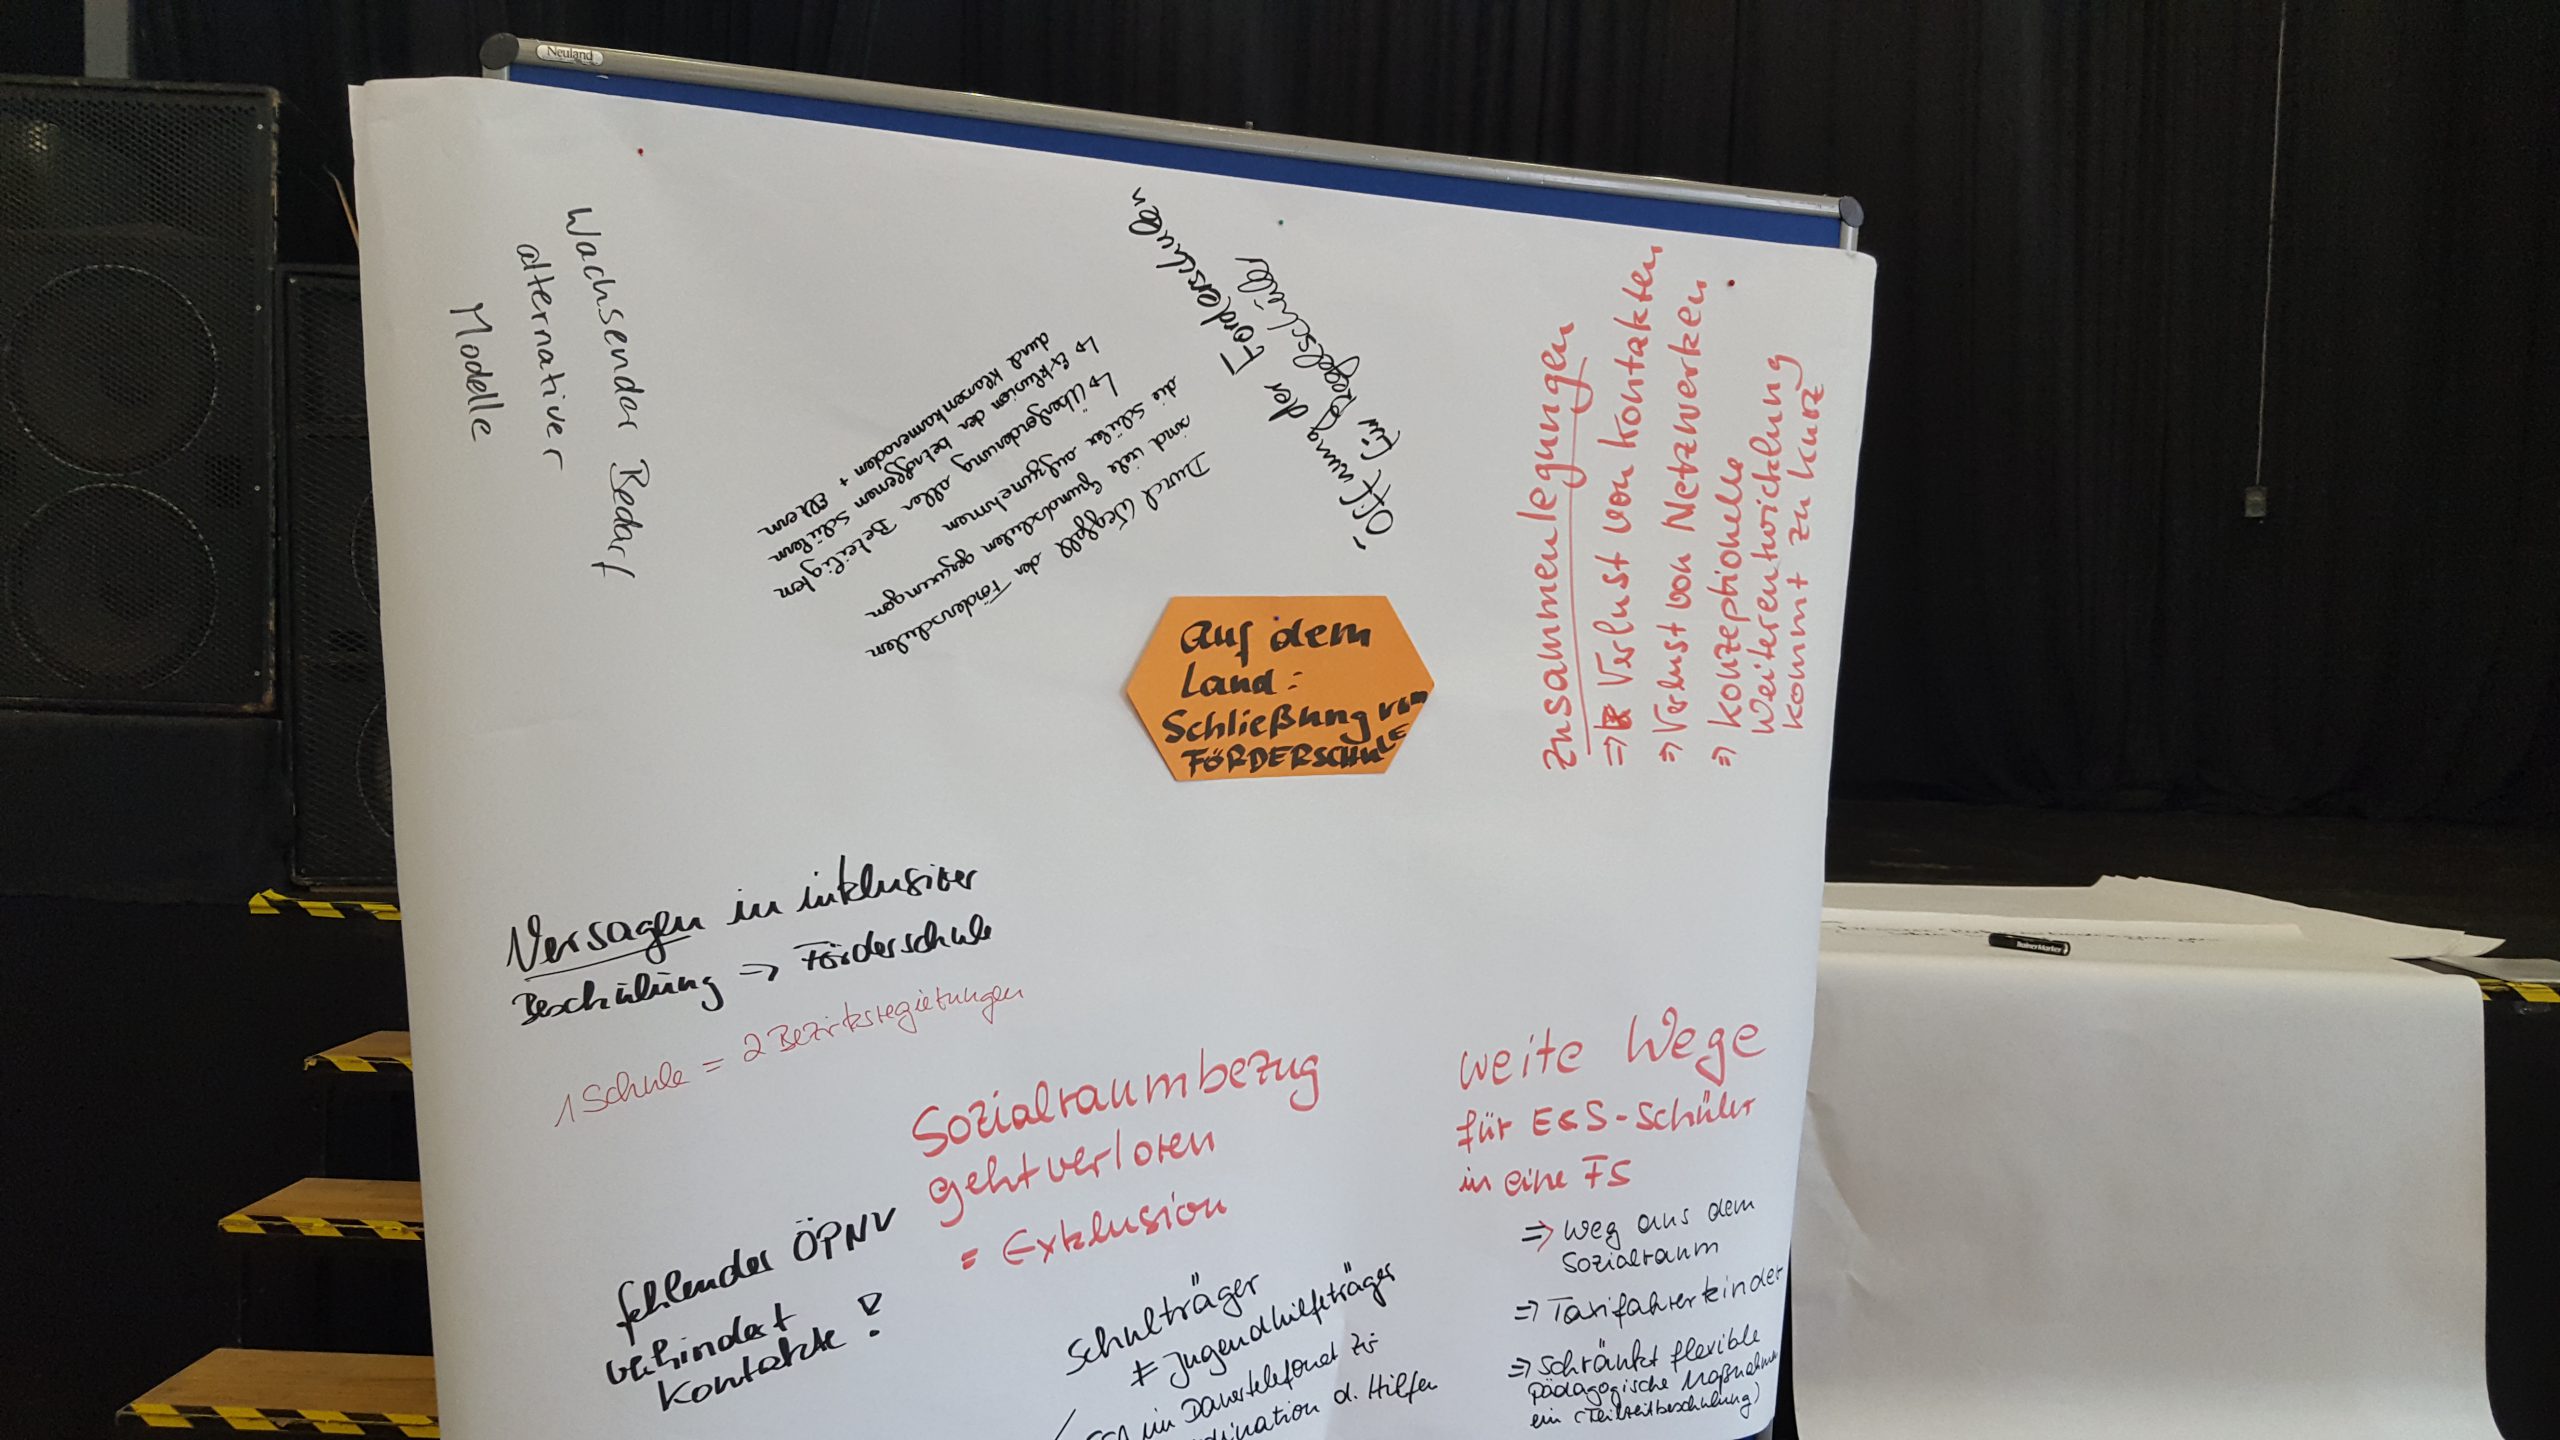 Neuland
Wachsender Bedarf
alternativer
Modelle
Durch Wegfall der Förderschulen
sind viele Grundschulen gezwungen
die Schüler aufzunehmen
↳ Überforderung aller Beteiligten
↳ Exklusion der betroffenen Schülern
durch Klassenkameraden + Eltern
Öffnung der Förderschulen
für Regelschüler
Zusammenlegungen
⇒ Verlust von Kontakten
⇒ Verlust von Netzwerken
⇒ konzeptionelle
Weiterentwicklung
kommt zu kurz
auf dem
Land:
Schließung von
FÖRDERSCHULE
Versagen in inklusiver
Beschulung ⇒ Förderschule
1 Schule = 2 Bezirksregierungen
Sozialraumbezug
geht verloren
= Exklusion
fehlender ÖPNV
behindert
Kontakte !
Schulträger
≠ Jugendhilfeträger
im Dauertelefonat zu
d. Hilfen
weite Wege
für E&S-Schüler
in eine FS
⇒ Weg aus dem
Sozialraum
⇒ Taxifahrerkinder
⇒ schränkt flexible
pädagogische Maßnahmen
ein (Teilzeitbeschulung)
TrainerMarker